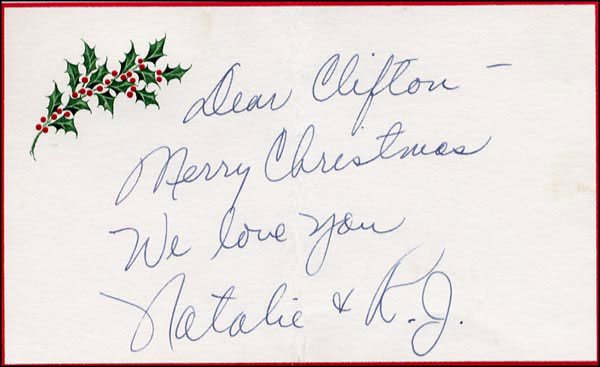 Dear Clifton –
Merry Christmas
We love you
Natalie & R.J.